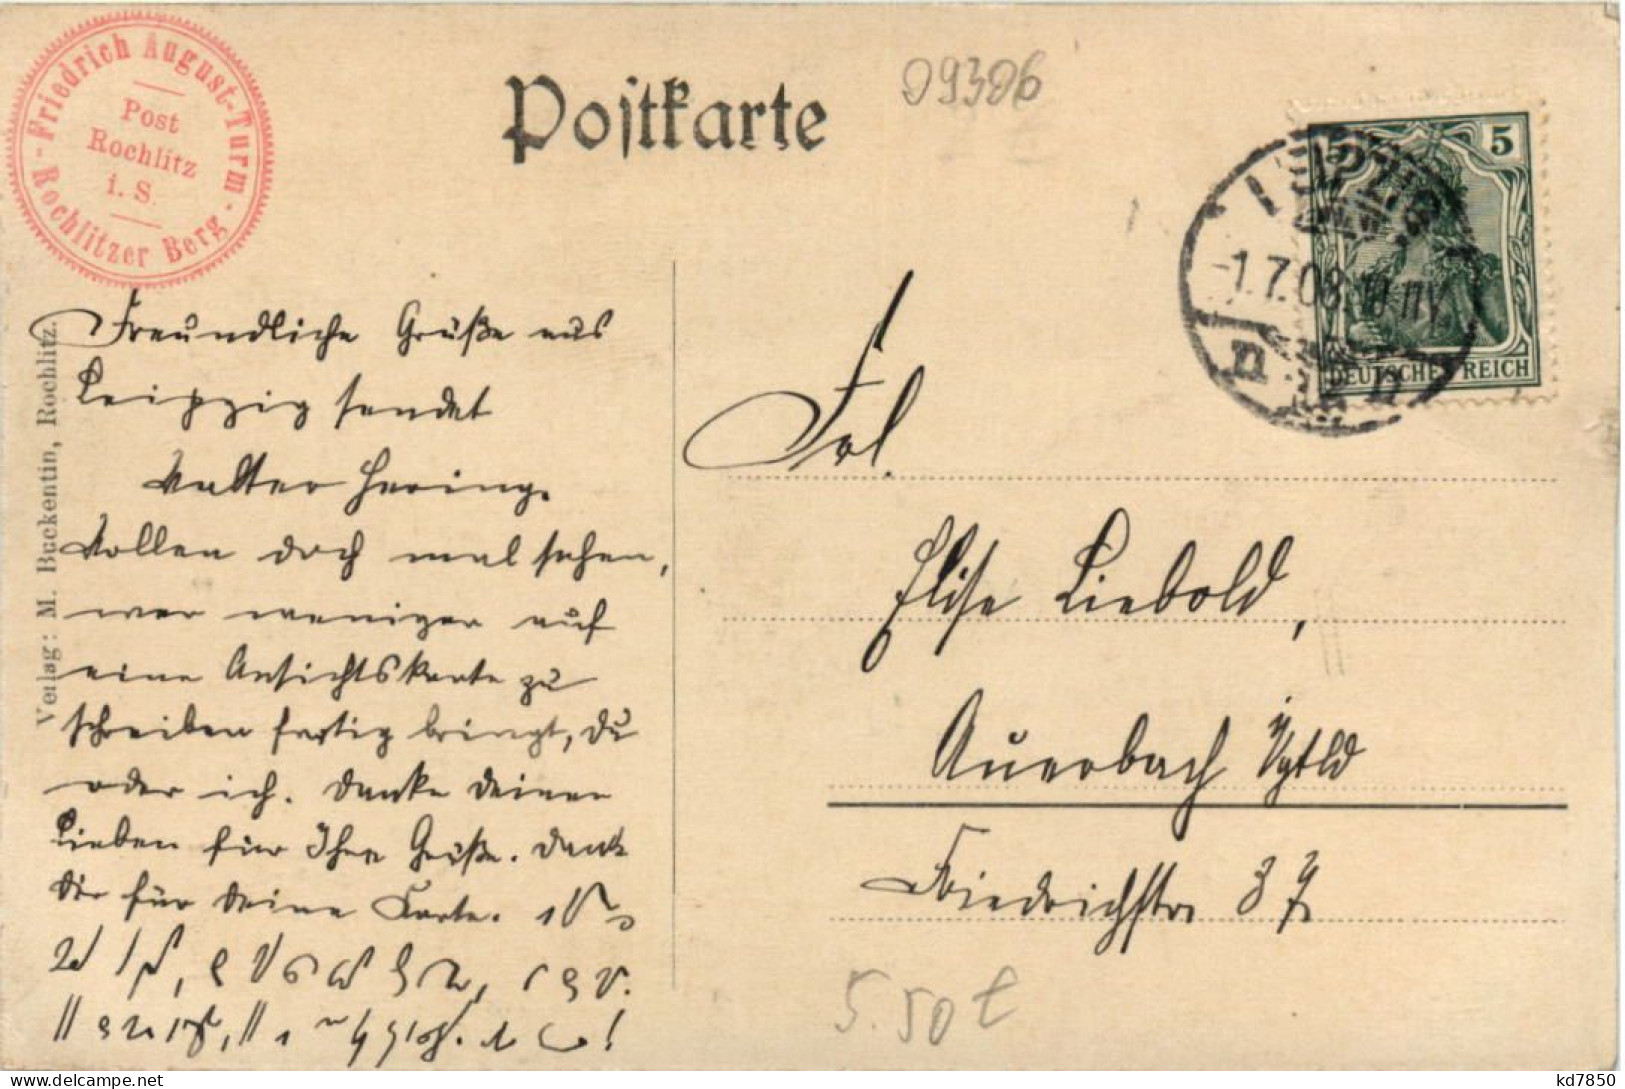 Friedrich August-Turm
Post
Rochlitz
i. S.
Rochlitzer Berg
Postkarte
09306
5
LEIPZIG
-1.7.08.10-11V.
n n
DEUTSCHES REICH
Verlag: M. Buckentin, Rochlitz.
Freundliche Grüße aus
Leipzig sendet
Walter Hering.
Wollen doch mal sehen,
wer weniger auf
eine Ansichtskarte zu
schreiben fertig bringt, du
oder ich. Danke deinen
Lieben für Ihre Grüße. Dank
dir für deine Karte.
Frl.
Elise Liebold,
Auerbach i/Vgtld
Friedrichstr 37
5.50
kd7850